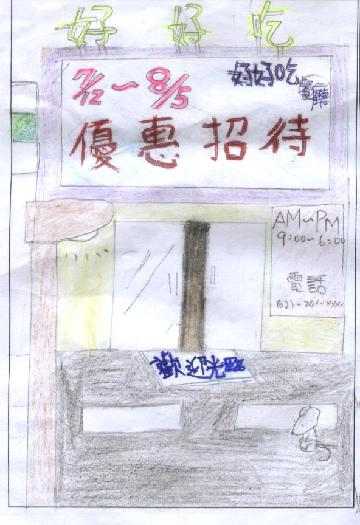 好 好 吃
7/2~8/5
好好吃
餐廳
優惠招待
AM~PM
9:00~6:00
電話
歡迎光臨